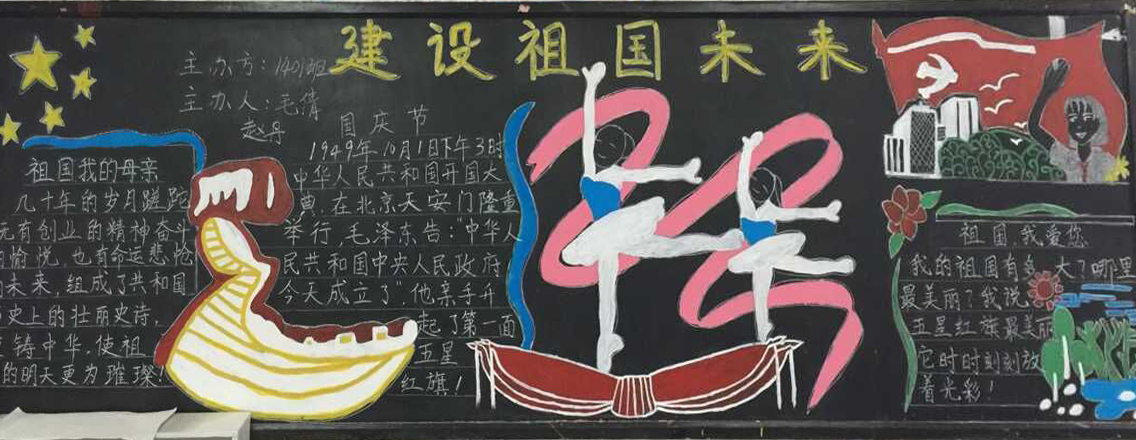 建设祖国未来
主办方：1401班
主办人：毛倩
赵丹
祖国我的母亲
几十年的岁月蹉跎
元有创业的精神奋斗
愉悦，也有命运悲怆
的未来，组成了共和国
史上的壮丽史诗，
铸中华，使祖
的明天更为璀璨！
国庆节
1949年10月1日下午3时
中华人民共和国开国大
典，在北京天安门隆重
举行，毛泽东告："中华人
民共和国中央人民政府
今天成立了"。他亲手升
起了第一面
五星
红旗！
祖国，我爱您
我的祖国有多大？哪里
最美丽？我说
五星红旗最美丽
它时时刻刻放
着光彩！